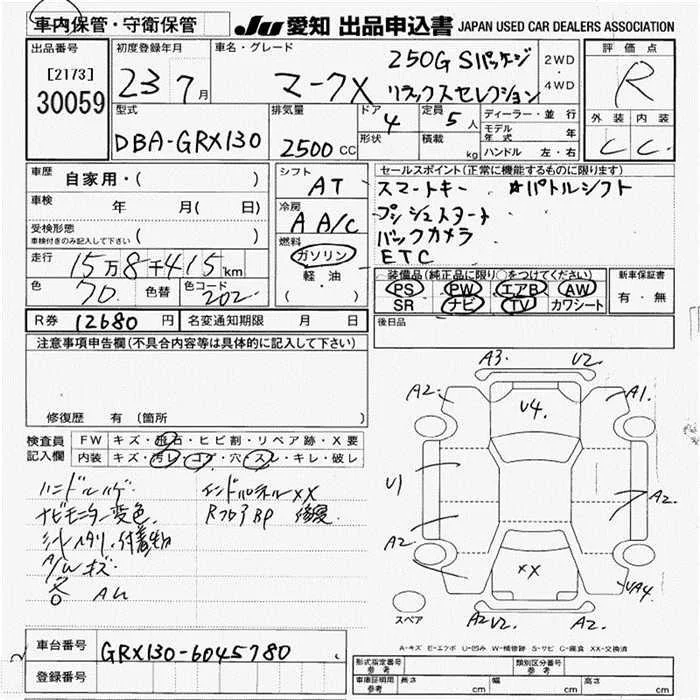 車内保管・守衛保管
JU 愛知 出品申込書 JAPAN USED CAR DEALERS ASSOCIATION
出品番号
[2173]
30059
初度登録年月
23 7月
車名・グレード
マークX
250G Sパッケージ
リラックスセレクション
2WD
4WD
評価点
R
外装 内装
C C
型式
DBA-GRX130
排気量
2500 CC
ドア
4
形状
定員
5人
積載
kg
ディーラー・並行
モデル年式 年
ハンドル 左・右
車歴 自家用・( )
車検 年 月( 日)
受検形態
車検付きのみ記入して下さい ( )
走行 15万8千415km
色 70. 色替 色コード 202.
シフト
AT
冷房
A A/C
燃料
ガソリン
軽油
( )
セールスポイント(正常に機能するものに限ります)
スマートキー ☆パドルシフト
プッシュスタート
バックカメラ
ETC
装備品(純正品に限り○をつけてください)
PS PW エアB AW
SR ナビ TV カワシート
新車保証書
有・無
後日品
R券 12680円 名変通知期限 月 日
注意事項申告欄(不具合内容等は具体的に記入して下さい)
修復歴 有(箇所 )
検査員記入欄
FW キズ・飛石・ヒビ割・リペア跡・X要
内装 キズ・汚レ・コゲ・穴・スレ・キレ・破レ
ハンドルハゲ インドパネルXX
ナビモニター変色. RフロアBP 修復.
シートヘタリ・付着物
A/Wキズ
各 AU
A3. U2.
A2. A1.
U4.
U1 A2.
A2
XX
UA4.
A2 U2. A2.
スペア
A-キズ E-エクボ U-凹み W-補修跡 S-サビ C-腐食 XX-交換済
車台番号 GRX130-6045780
登録番号
形式指定番号 参考
類別区分番号 参考
車庫証明用 参考 長さ cm 幅 cm 高さ cm